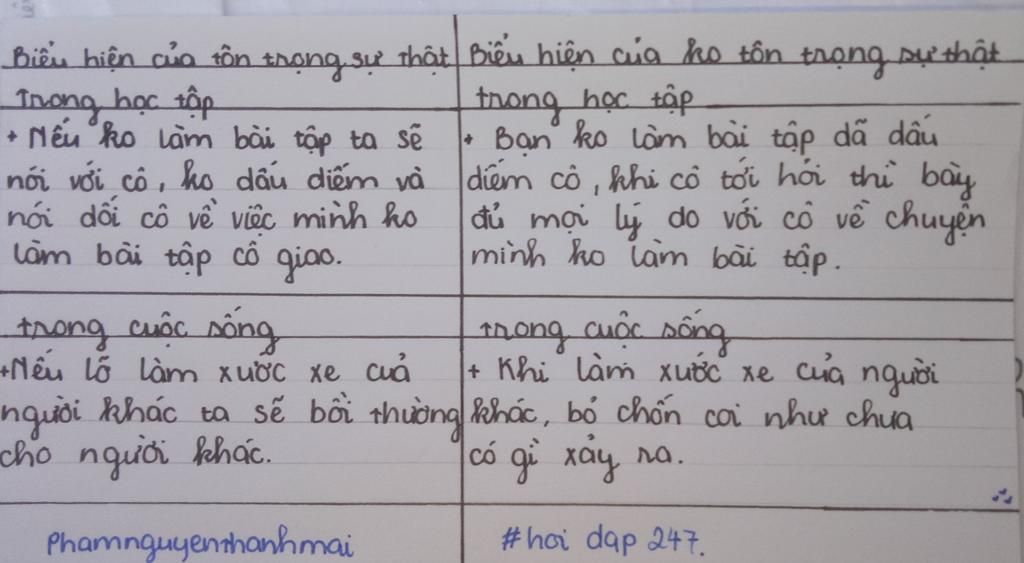 Biểu hiện của tôn trọng sự thật
Trong học tập
+ Nếu ko làm bài tập ta sẽ
nói với cô, ko dấu diếm và
nói dối cô về việc mình ko
làm bài tập cô giao.
Biểu hiện của ko tôn trọng sự thật
trong học tập
+ Bạn ko làm bài tập dã dấu
diếm cô, khi cô tới hỏi thì bày
đủ mọi lý do với cô về chuyện
mình ko làm bài tập.
trong cuộc sống
+ Nếu lỡ làm xước xe cuả
người khác ta sẽ bồi thường
cho người khác.
trong cuộc sống
+ Khi làm xước xe của người
khác, bỏ chốn coi như chưa
có gì xảy ra.
phamnguyenthanhmai
#hoi dap 247.